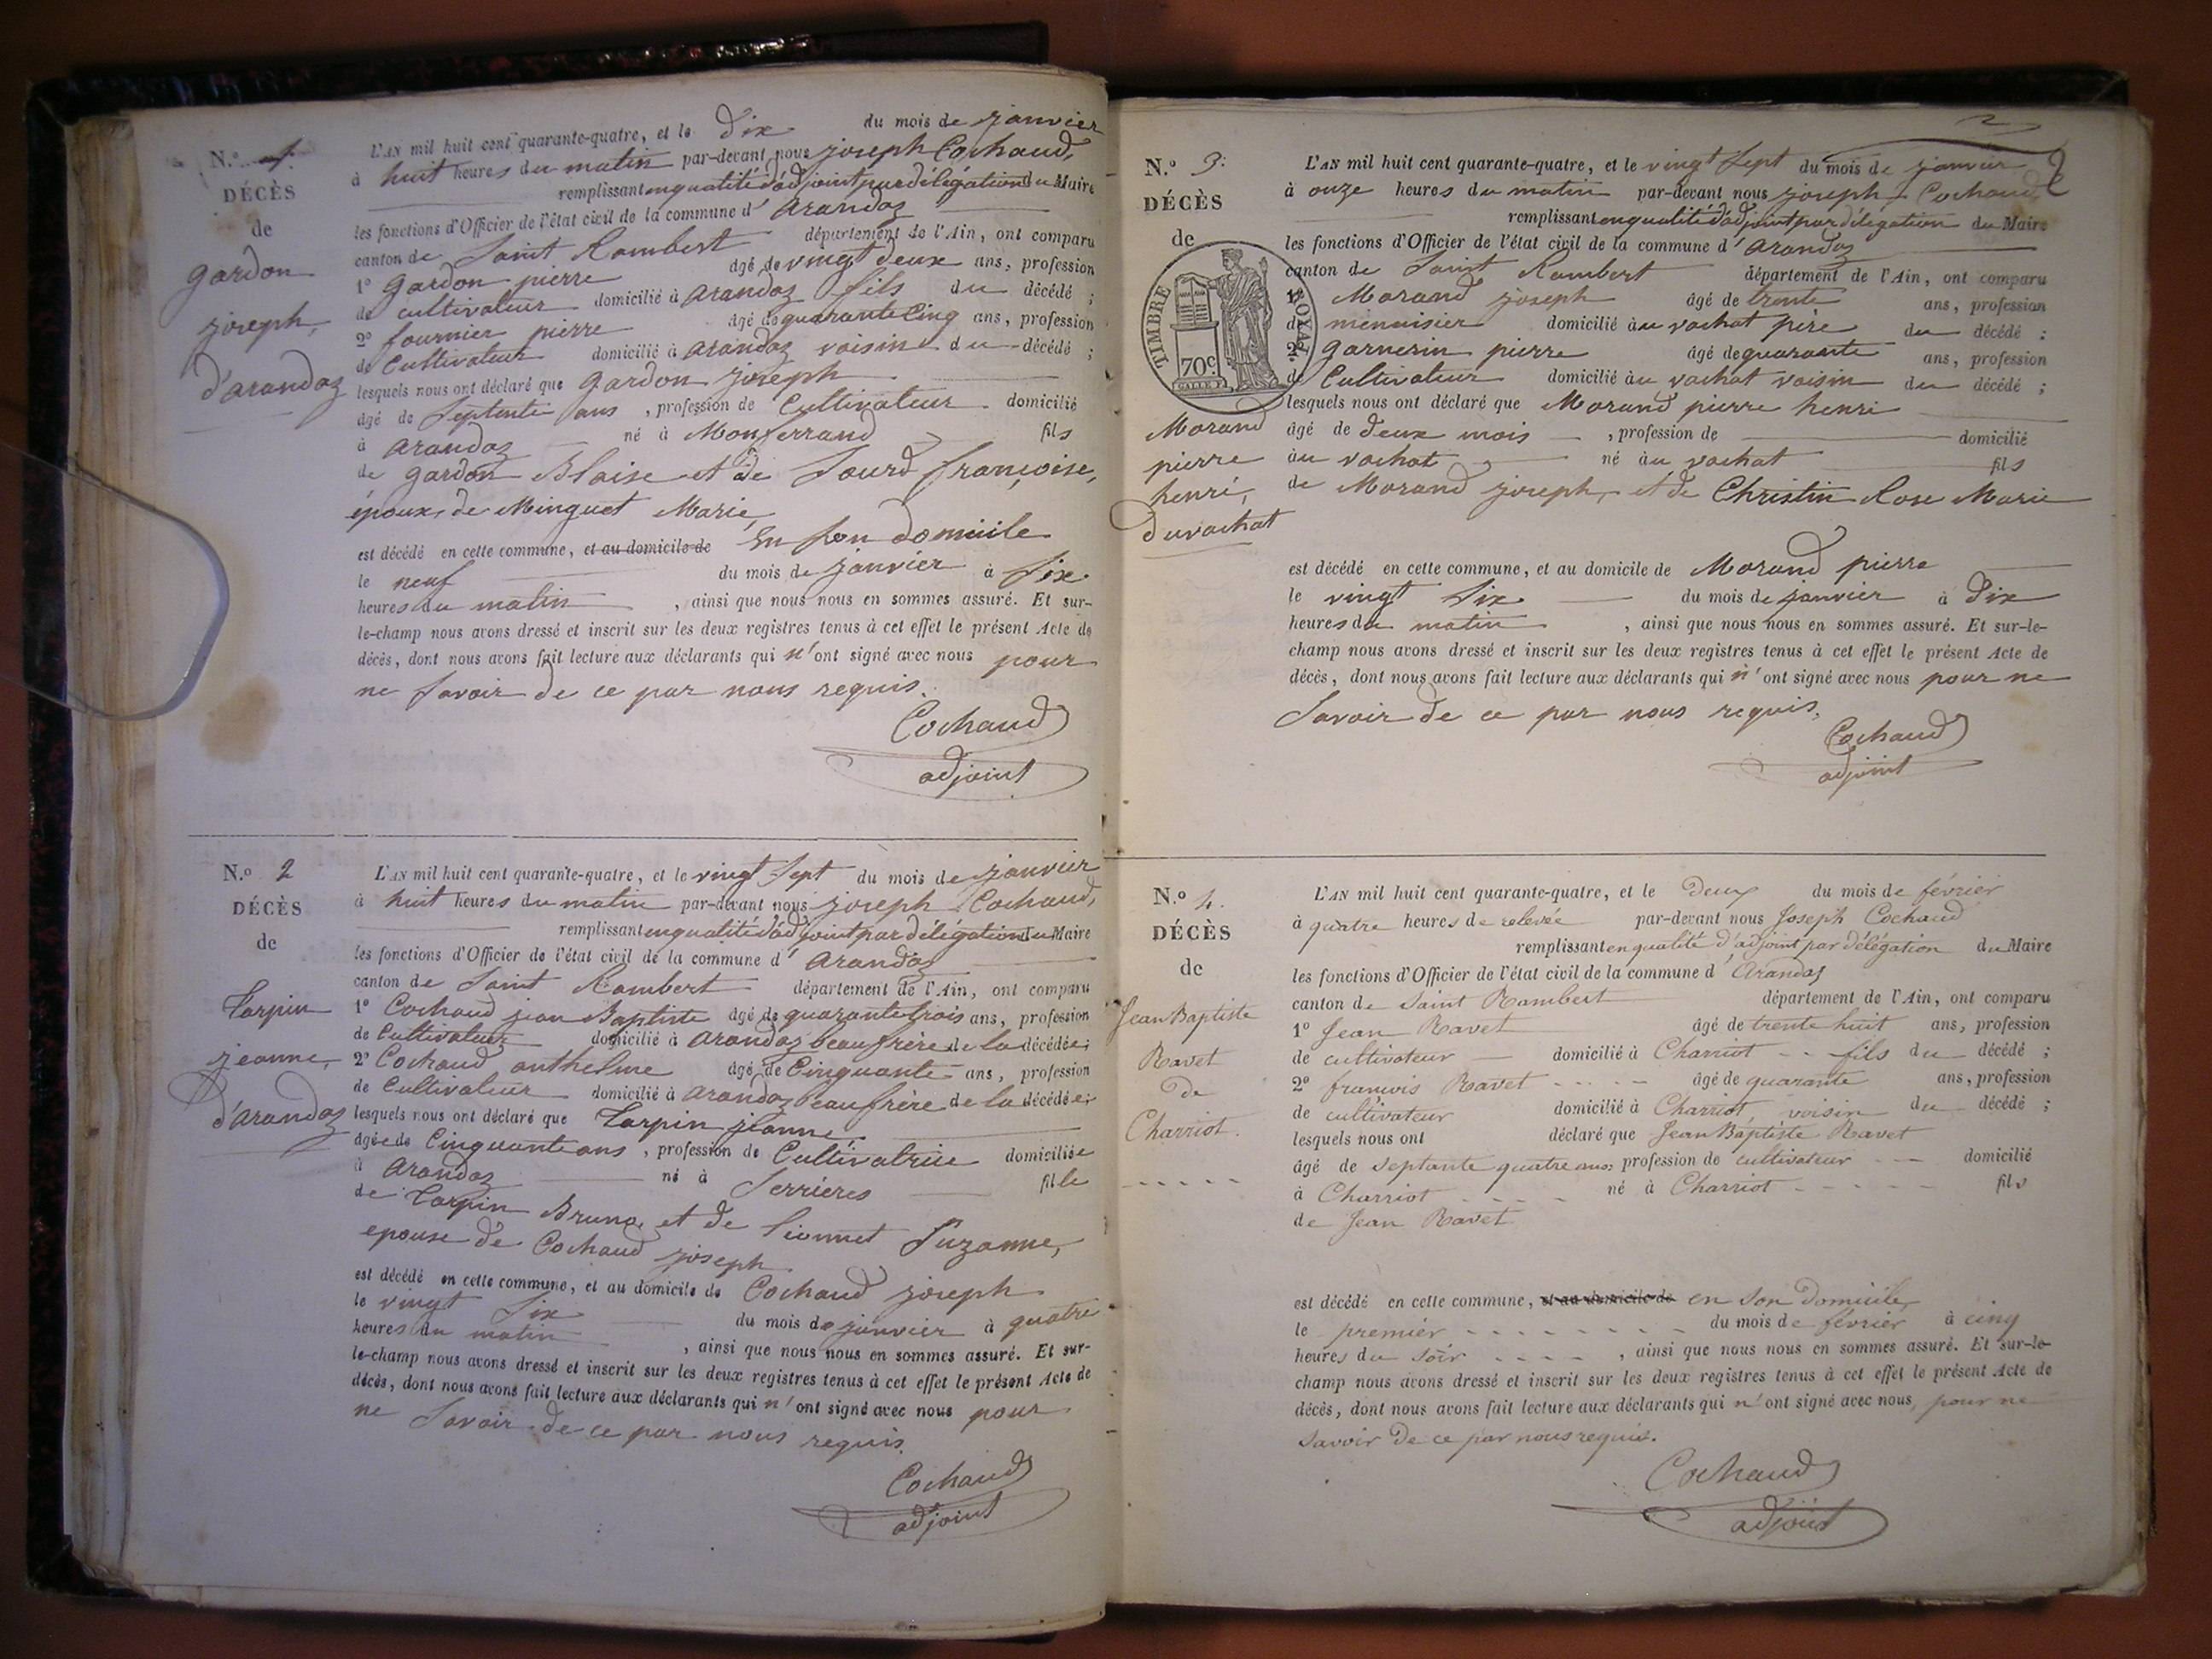 N.º 1.
DÉCÈS
de
gardon
joseph,
d'arandaz
L'AN mil huit cent quarante-quatre, et le dix du mois de janvier
à huit heures du matin par-devant nous joseph Cochaud,
remplissant en qualité d'adjoint par délégation du Maire
les fonctions d'Officier de l'état civil de la commune d'arandaz
canton de Saint Rambert département de l'Ain, ont comparu
1º gardon pierre âgé de vingt deux ans, profession
de cultivateur domicilié à arandaz fils du décédé ;
2º fournier pierre âgé de quarante Cinq ans, profession
de Cultivateur domicilié à arandaz voisin du décédé ;
lesquels nous ont déclaré que gardon joseph
âgé de Septente ans, profession de Cultivateur domicilié
à arandaz né à Monferrand fils
de gardon Blaise et de Sourd françoise,
époux de Minguet Marie,
est décédé en cette commune, et au domicile de En son domicile
le neuf du mois de janvier à Six
heures du matin, ainsi que nous nous en sommes assuré. Et sur-
le-champ nous avons dressé et inscrit sur les deux registres tenus à cet effet le présent Acte de
décès, dont nous avons fait lecture aux déclarants qui n'ont signé avec nous pour
ne Savoir de ce par nous requis.
Cochaud
adjoint
N.º 2
DÉCÈS
de
Tarpin
jeanne,
d'arandaz
L'AN mil huit cent quarante-quatre, et le vingt Sept du mois de janvier
à huit heures du matin par-devant nous joseph Cochaud,
remplissant en qualité d'adjoint par délégation du Maire
les fonctions d'Officier de l'état civil de la commune d'arandaz
canton de Saint Rambert département de l'Ain, ont comparu
1º Cochaud jean Baptiste âgé de quarante trois ans, profession
de Cultivateur domicilié à arandaz beau frère de la décédée ;
2º Cochaud anthelme âgé de Cinquante ans, profession
de Cultivateur domicilié à arandaz beau frère de la décédée ;
lesquels nous ont déclaré que Tarpin jeanne
âgée de Cinquante ans, profession de Cultivatrice domiciliée
à arandaz né à Serrières fille
de Tarpin Bruno, et de Sionnet Suzanne,
epouse de Cochaud joseph
est décédé en cette commune, et au domicile de Cochaud joseph
le vingt Six du mois de janvier à quatre
heures du matin, ainsi que nous nous en sommes assuré. Et sur-
le-champ nous avons dressé et inscrit sur les deux registres tenus à cet effet le présent Acte de
décès, dont nous avons fait lecture aux déclarants qui n'ont signé avec nous pour
ne Savoir de ce par nous requis.
Cochaud
adjoint
2
N.º 3.
DÉCÈS
de
TIMBRE ROYAL
70c
Morand
pierre
henri,
du vachat
L'AN mil huit cent quarante-quatre, et le vingt Sept du mois de janvier
à onze heures du matin par-devant nous joseph Cochaud,
remplissant en qualité d'adjoint par délégation du Maire
les fonctions d'Officier de l'état civil de la commune d'arandaz
canton de Saint Rambert département de l'Ain, ont comparu
1º Morand joseph âgé de trente ans, profession
de menuisier domicilié au vachat père du décédé ;
2º garnerin pierre âgé de quarante ans, profession
de Cultivateur domicilié au vachat voisin du décédé ;
lesquels nous ont déclaré que Morand pierre henri
âgé de deux mois, profession de domicilié
au vachat né au vachat fils
de Morand joseph, et de Christin Rose Marie
est décédé en cette commune, et au domicile de Morand pierre
le vingt Six du mois de janvier à dix
heures du matin, ainsi que nous nous en sommes assuré. Et sur-le-
champ nous avons dressé et inscrit sur les deux registres tenus à cet effet le présent Acte de
décès, dont nous avons fait lecture aux déclarants qui n'ont signé avec nous pour ne
Savoir de ce par nous requis.
Cochaud
adjoint
N.º 4.
DÉCÈS
de
Jean Baptiste
Ravet
De
Charriot.
L'AN mil huit cent quarante-quatre, et le Deux du mois de février
à quatre heures de relevée par-devant nous Joseph Cochaud
remplissant en qualité d'adjoint par délégation du Maire
les fonctions d'Officier de l'état civil de la commune d'Arandas
canton de Saint Rambert département de l'Ain, ont comparu
1º Jean Ravet âgé de trente huit ans, profession
de cultivateur domicilié à Charriot fils du décédé ;
2º francois Ravet âgé de quarante ans, profession
de cultivateur domicilié à Charriot, voisin du décédé ;
lesquels nous ont déclaré que Jean Baptiste Ravet
âgé de septante quatre ans, profession de cultivateur domicilié
à Charriot né à Charriot fils
de Jean Ravet
est décédé en cette commune, et au domicile de en son Domicile,
le premier du mois de février à cinq
heures du soir, ainsi que nous nous en sommes assuré. Et sur-le-
champ nous avons dressé et inscrit sur les deux registres tenus à cet effet le présent Acte de
décès, dont nous avons fait lecture aux déclarants qui n'ont signé avec nous, pour ne
savoir De ce par nous requis.
Cochaud
adjoint